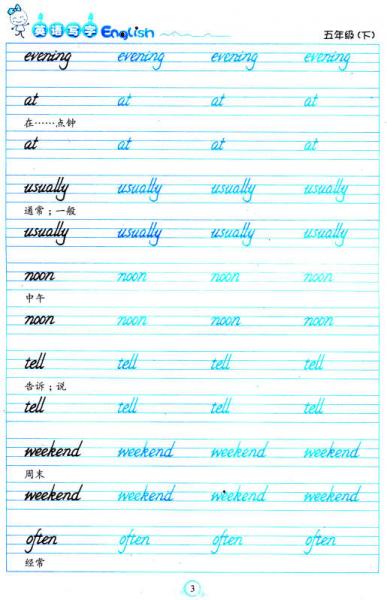 英语写字 English 五年级(下)
evening evening evening evening
at at at at
在……点钟
at at at at
usually usually usually usually
通常；一般
usually usually usually usually
noon noon noon noon
中午
noon noon noon noon
tell tell tell tell
告诉；说
tell tell tell tell
weekend weekend weekend weekend
周末
weekend weekend weekend weekend
often often often often
经常
3